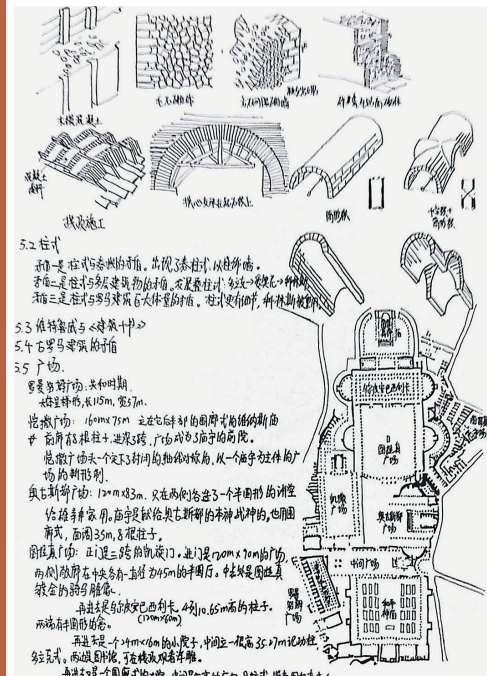 大模混凝土
毛石砌体
混凝土
筒形拱
十字拱+
筒形拱
拱顶施工
5.2 柱式
矛盾一是柱式与券拱的矛盾。出现了券柱式,以柱饰墙。
矛盾二是柱式与多层建筑物的矛盾。发展叠柱式:多立克→爱奥尼→科林斯
矛盾三是柱式与罗马建筑巨大体量的矛盾。柱式更有细节,
5.3 维特鲁威与《建筑十书》
5.4 古罗马建筑的矛盾
5.5 广场.
罗曼努姆广场:共和时期.
大体呈梯形,长115m,宽57m.
恺撒广场:160m×75m 立在它后半部的围廊式的维纳斯庙
前廊有8根柱子,进深3跨,广场成为了庙宇的前院。
恺撒广场头一个定下了封闭的轴线对称的,以一个庙宇为主体的广
场的新形制.
奥古斯都广场:120m×83m. 只在两侧各造了一个半圆形的讲堂
给雄辩家用。庙宇是献给奥古斯都的本神战神的,也用围
廊式,面阔35m,8根柱子.
图拉真广场:正门是三跨的凯旋门。进门是120m×90m的广场,
两侧敞廊在中央各有一直径为45m的半圆厅。中央立是图拉真
镀金的骑马铜像.
再进去是乌尔比亚巴西利卡。4列10.65m高的柱子.
两端有半圆形的龛.
(120m×60m)
再进去是一个24m×16m的小院子,中间立一根高35.27m纪功柱,
多立克式。两边图书馆,可在楼顶观看浮雕。
乌尔比亚巴西利卡
图拉真
广场
恺撒
广场
奥古斯都
广场
中间广场
和平
庙